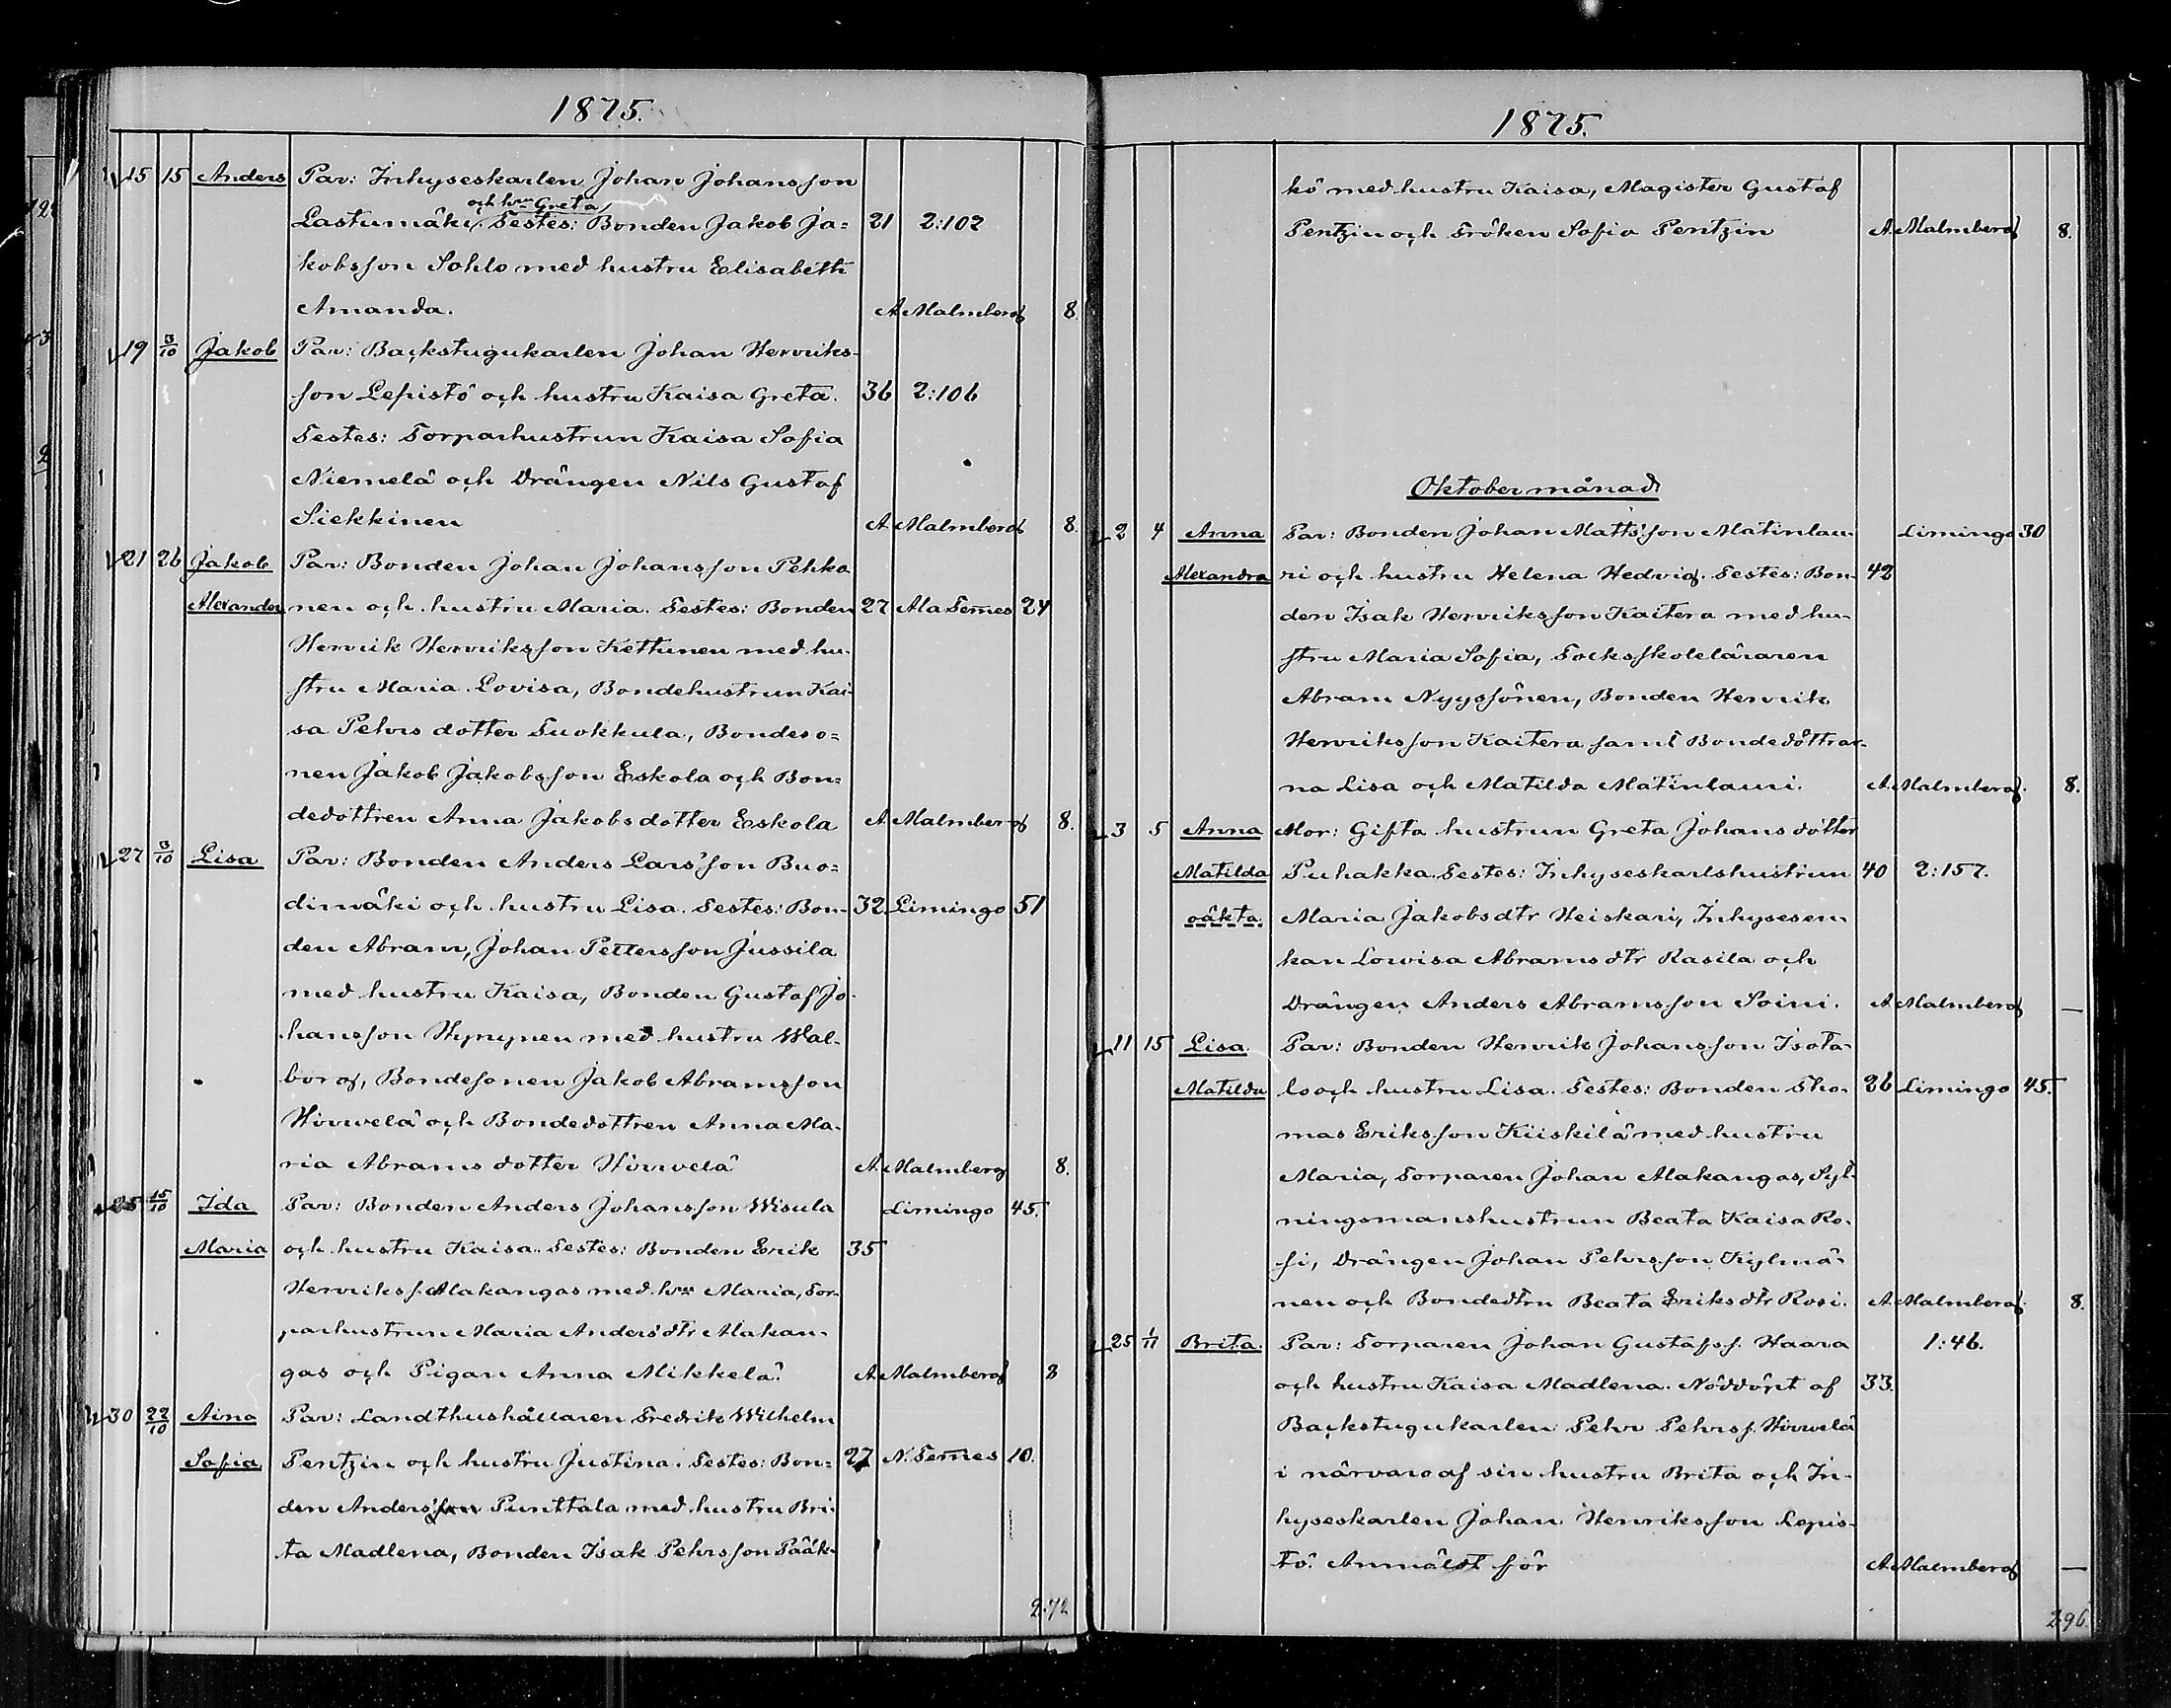 1875.
15 15 Anders Par: Inhyseskarlen Johan Johansson
och hru Greta
Lastumäki. Testes: Bonden Jakob Ja= 21 2:102
kobsson Sohlo med hustru Elisabeth
Amanda. A Malmberg 8.
19 3/10 Jakob Par: Backstugukarlen Johan Henriks-
son Lepistö och hustru Kaisa Greta. 36 2:106
Testes: Torparhustrun Kaisa Sofia
Niemelä och Drängen Nils Gustaf
Siekkinen A. Malmberg 8.
21 26 Jakob Par: Bonden Johan Johansson Pehko
Alexander nen och hustru Maria. Testes: Bonden 27 Ala Tem̅es 24
Henrik Henriksson Kettunen med hu-
stru Maria Lovisa, Bondehustrun Kai-
sa Pehrs dotter Tuokkula, Bondeso=
nen Jakob Jakobsson Eskola och Bon=
dedottren Anna Jakobsdotter Eskola A. Malmberg 8.
27 3/10 Lisa Par: Bonden Anders Lars'son Buo=
dinmäki och hustru Lisa. Testes: Bon- 32. Limingo 51
den Abram, Johan Pettersson Jussila
med hustru Kaisa, Bonden Gustaf Jo-
hansson Hyrynen med hustru Wal-
borg, Bondesonen Jakob Abramsson
Hirwelä och Bondedottren Anna Ma-
ria Abrams dotter Hirwelä A. Malmberg 8.
25 15/10 Ida Par: Bonden Anders Johansson Wisula Limingo 45.
Maria och hustru Kaisa. Testes: Bonden Erik 35
Henrikss. Alakangas med hru Maria, Tor-
parhustrun Maria Anders'dtr Alakan-
gas och Pigan Anna Mikkelä. A. Malmberg 8
30 22/10 Aina Par: Landthushållaren Fredrik Wilhelm
Sofia Pentzin och hustru Justina. Testes: Bon= 27 N. Tem̅es 10.
den Anders'son Punttala med hustru Bri-
ta Madlena, Bonden Isak Pehrsson Pääk-
2.72
1875.
kö med hustru Kaisa, Magister Gustaf
Pentzin och Fröken Sofia Pentzin A. Malmberg 8.
Oktober månad
2 4 Anna Par: Bonden Johan Matts'son Matinlau- Limingo 30
Alexandra ri och hustru Helena Hedvig. Testes: Bon- 42
den Isak Henriksson Kaitera med hu-
stru Maria Sofia, Folkskoleläraren
Abram Nyyssönen, Bonden Henrik
Henriksson Kaitera samt Bondedöttrar-
na Lisa och Matilda Matinlauri. A. Malmberg. 8.
3 5 Anna Mor: Gifta hustrun Greta Johans dotter
Matilda Puhakka. Testes: Inhyseskarlshustrun 40 2:157.
oäkta. Maria Jakobsdtr Heiskari, Inhysesen-
kan Lowisa Abramsdtr Rasila och
Drängen Anders Abramsson Soini. A. Malmberg —
11 15 Lisa Par: Bonden Henrik Johansson Isota-
Matilda lo och hustru Lisa. Testes: Bonden Tho- 26 Limingo 45.
mas Eriksson Kiiskilä med hustru
Maria, Torparen Johan Alakangas, Syt-
ningsmanshustrun Beata Kaisa Ro-
si, Drängen Johan Pehrsson Kylmä-
nen och Bondedtrn Beata Eriksdtr Rosi. A. Malmberg. 8.
25 1/11 Brita. Par: Torparen Johan Gustafss. Haara 1:46.
och hustru Kaisa Madlena. Nöddöpt af 33.
Backstugukarlen Pehr Pehrss. Hirwelä
i närvaro af sin hustru Brita och In-
hyseskarlen Johan Henriksson Lepis-
tö. Anmäldt för A. Malmberg —
296